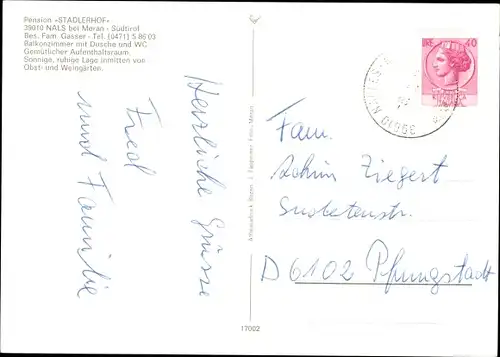 Pension «STADLERHOF»
39010 NALS bei Meran - Südtirol
Bes. Fam. Gasser - Tel. (0471) 5 86 03
Balkonzimmer mit Dusche und WC
Gemütlicher Aufenthaltsraum
Sonnige, ruhige Lage inmitten von
Obst- und Weingärten.
Herzliche Grüsse
Fred
und Familie
17002
LIRE 40
39010
Fam.
Achim Ziegert
Sudetenstr.
D 6102 Pfungstadt